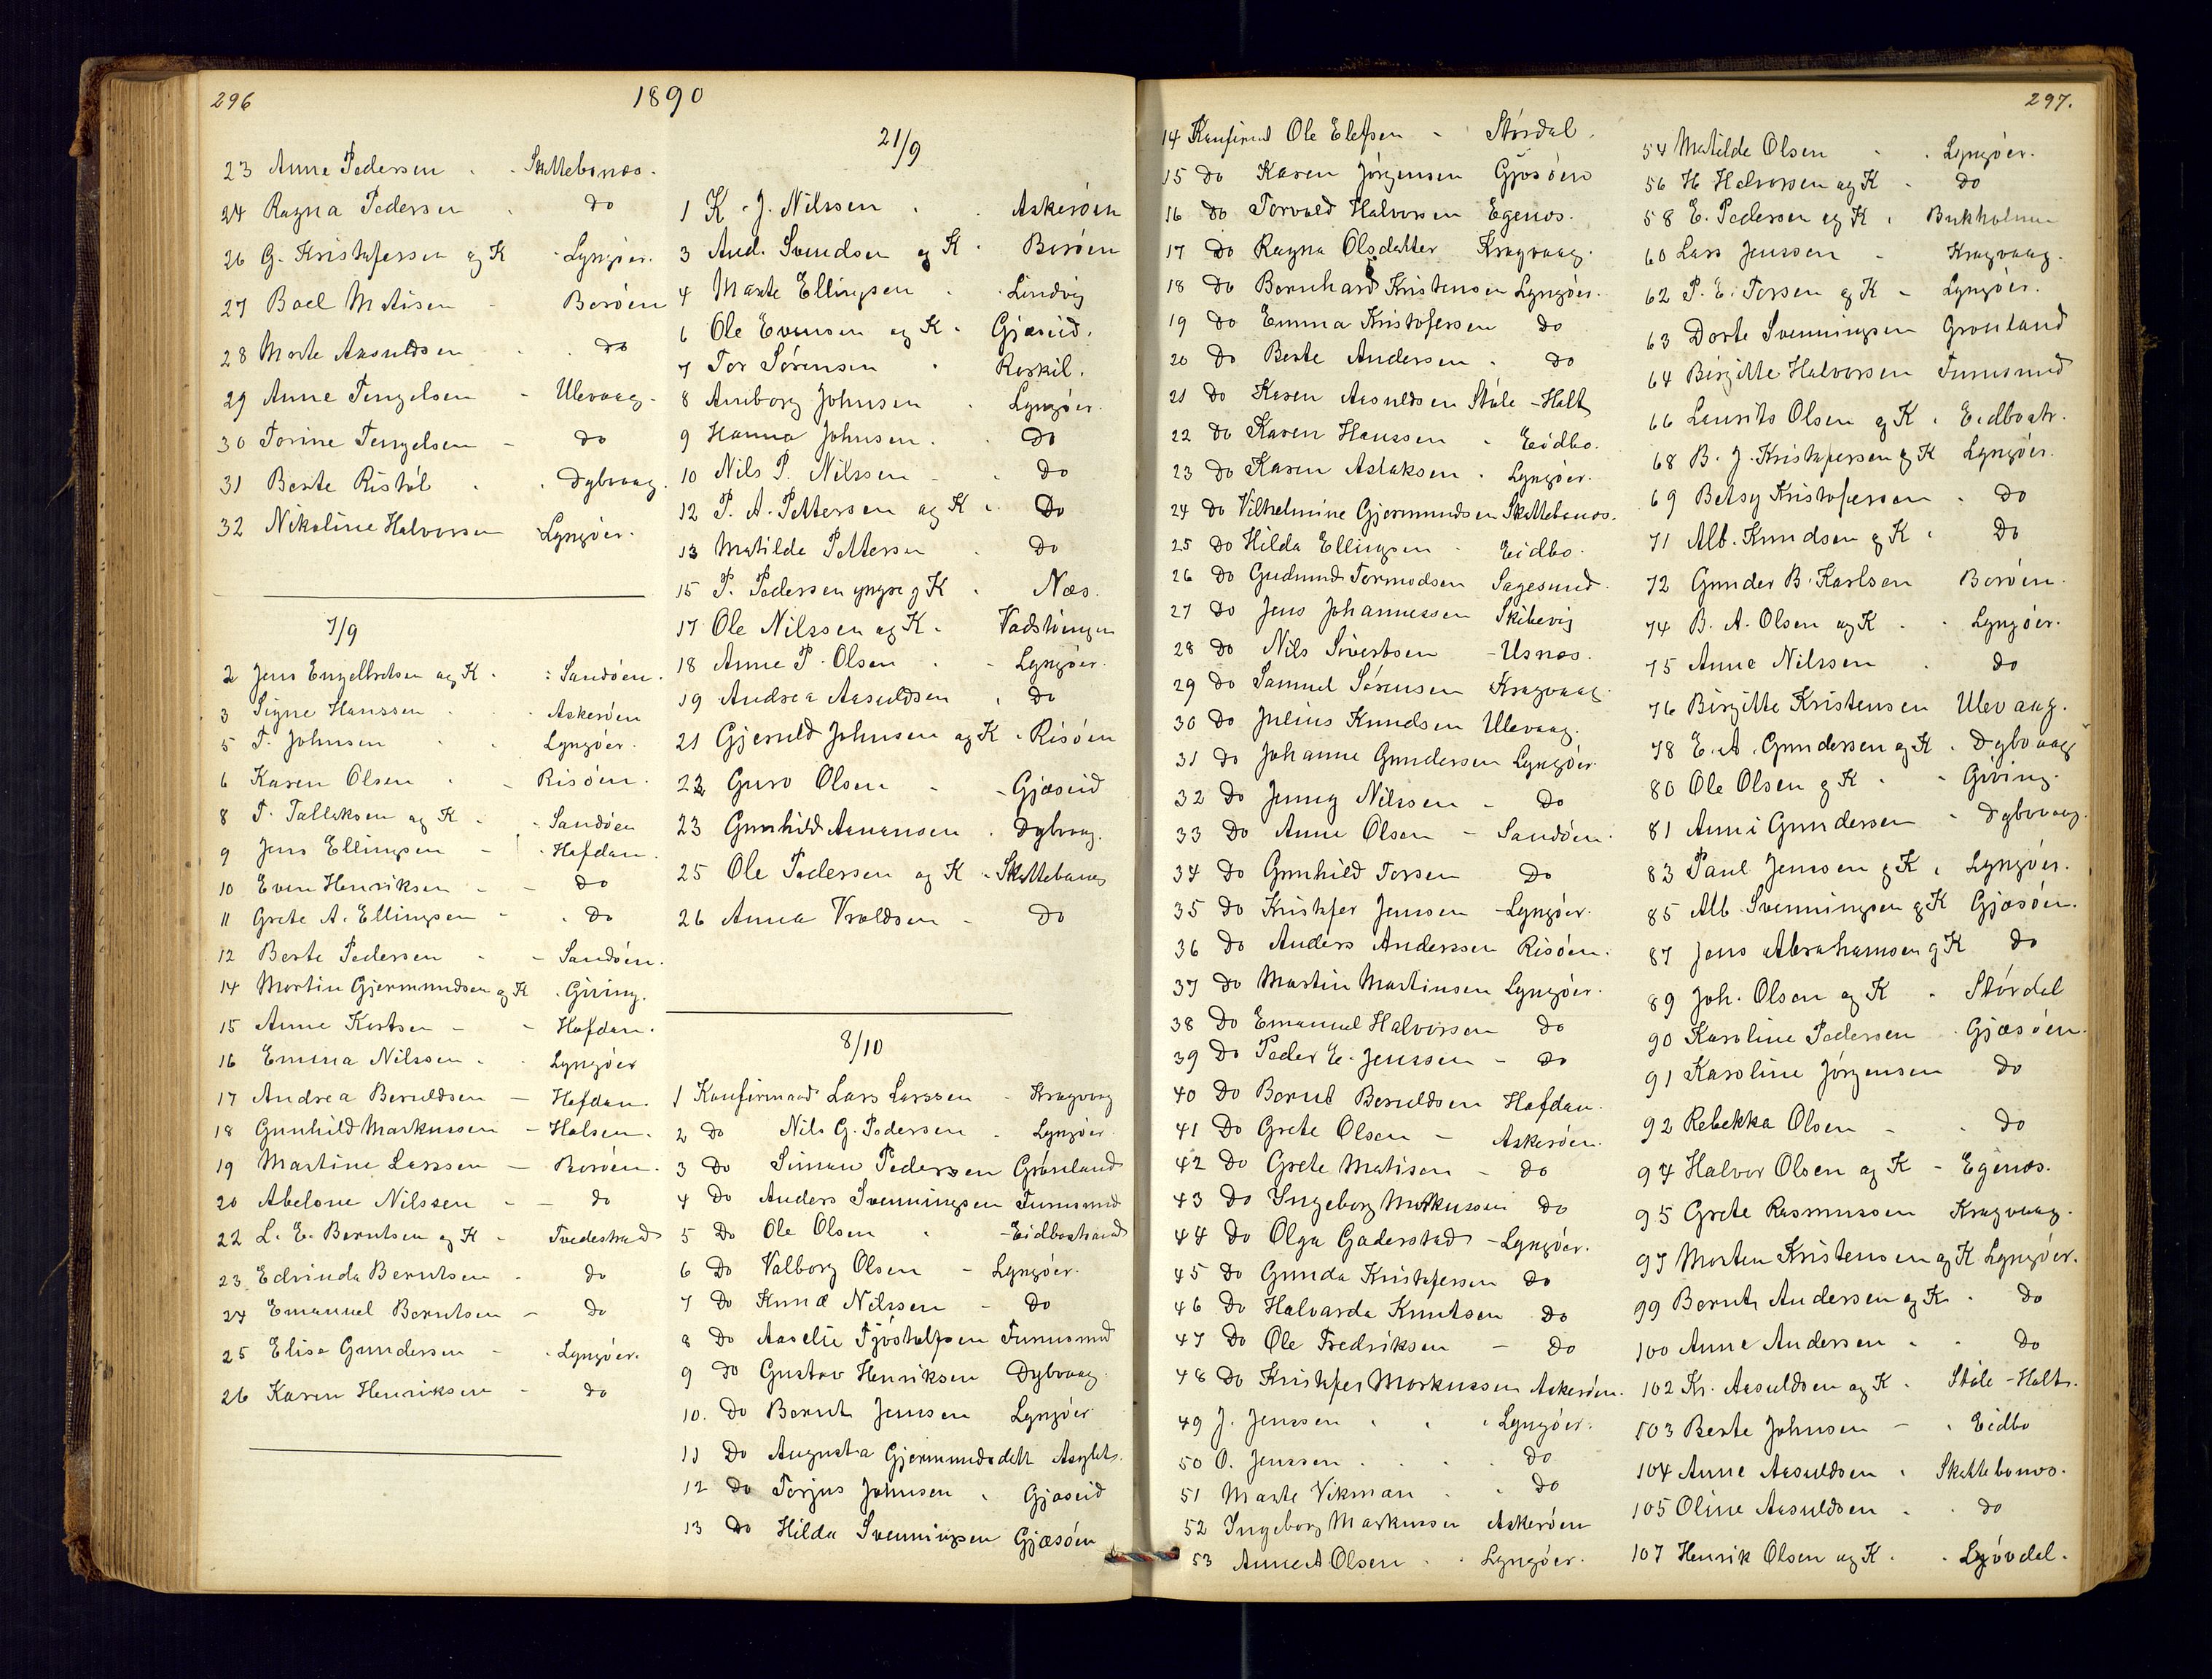 296
1890
23 Anne Pedersen - Skattebonæs.
24 Ragna Pedersen - do
26 G. Kristofersen og K - Lyngöer.
27 Boel Matisen - Boröen
28 Marte Aasuldsen - do
29 Anne Tengelsen - Ulevaag.
30 Torine Tengelsen - do
31 Berte Ristöl - Dybvaag.
32 Nikoline Halvorsen Lyngöer.
7/9
2 Jens Engelbretsen og K - Sandöen.
3 Signe Hanssen - Askeröen
5 T. Johnsen - Lyngöer.
6 Karen Olsen - Risöen.
8 T. Tallaksen og K - Sandöen
9 Jens Ellingsen - Hafdan.
10 Even Henriksen - do
11 Grete A. Ellingsen - do
12 Berte Pedersen - Sandöen.
14 Martin Gjermundsen og K - Giving.
15 Anne Kortsen - Hafdan.
16 Emma Nilssen - Lyngöer
17 Andrea Beruldsen - Hafdan.
18 Gunhild Markussen - Holsen.
19 Martine Larssen - Boröen.
20 Abelone Nilssen - do
22 L. E. Berntsen og K - Tvedestrand
23 Edvinda Berntsen - do
24 Emanuel Berntsen - do
25 Elisa Gundersen - Lyngöer.
26 Karen Henriksen - do
21/9
1 K. J. Nilssen - Askeröen
3 And. Svendsen og K - Boröen
4 Marte Ellingsen - Lindvig
6 Ole Evensen og K - Gjæseid.
7 Tor Sörensen - Roskil.
8 Anborg Johnsen - Lyngöer.
9 Hanna Johnsen - do
10 Nils P. Nilssen - do
12 P. A. Pettersen og K - do
13 Matilde Pettersen - do
15 P. Pedersen yngre og K - Næs.
17 Ole Nilssen og K - Vadstöingen
18 Anne P. Olsen - Lyngöer.
19 Andrea Aasuldsen - do
21 Gjeruld Johnsen og K - Risöen
22 Guro Olsen - Gjæseid
23 Gunhild Aanensen - Dybvaag.
25 Ole Pedersen og K - Skattebonæs
26 Anna Vroldsen - do
8/10
1 Konfirmand Lars Larssen - Kragvaag
2 do Nils G. Pedersen - Lyngöer
3 do Simon Pedersen Grönland
4 do Anders Svenningsen Furusund
5 do Ole Olsen - Eidbostrand
6 do Valborg Olsen - Lyngöer.
7 do Knud Nilssen - do
8 do Aaselie Tjöstolfsen Furusund
9 do Gustav Henriksen Dybvaag.
10. do Bernt Jensen Lyngöer
11 do Augusta Gjermundsdatt Asylet.
12 do Torjus Johnsen - Gjæseid
13 do Hilda Svenningsen Gjæsöen
297.
14 Konfirmd Ole Elefsen - Stördal.
15 do Karen Jörgensen Gjæsöen
16 do Torvald Halvorsen Egenæs.
17 do Ragna Olsdatter Kragvaag.
18 do Bernhard Kristensen Lyngöer.
19 do Emma Kristofersen do
20 do Berte Andersen - do
21 do Karen Aasuldsen Støle - Holt
22 do Karen Hanssen - Eidbo.
23 do Karen Aslaksen - Lyngöer.
24 do Vilhelmine Gjermundsen Skattebonæs.
25 do Hilda Ellingsen - Eidbo.
26 do Gudmund Tormodsen Sagesund.
27 do Jens Johannessen Skibevig
28 do Nils Sivertsen - Usnæs.
29 do Samuel Sörensen Kragvaag.
30 do Julius Knudsen Ulevaag.
31 do Johanne Gundersen Lyngöer
32 do Jenny Nilssen - do
33 do Anne Olsen - Sandöen.
34 do Gunhild Torsen do
35 do Kristofer Jensen - Lyngöer.
36 do Anders Anderssen Risöen.
37 do Martin Martinsen Lyngöer.
38 do Emanuel Halvorsen do
39 do Peder E. Jenssen - do
40 do Bernt Beruldsen Hafdan.
41 do Grete Olsen - Askeröen.
42 do Grete Matisen - do
43 do Ingeborg Markussen do
44 do Olga Gaderstad - Lyngöer.
45 do Gunda Kristofersen do
46 do Halvarda Knutsen do
47 do Ole Fredriksen - do
48 do Kristofer Markussen Askeröen.
49 J. Jenssen - Lyngöer.
50 O. Jenssen - do
51 Marte Vikman - do
52 Ingeborg Markussen Askeröen
53 Anne A Olsen - Lyngöer.
54 Matilde Olsen - Lyngöer.
56 H. Halvorsen og K - do
58 E. Pedersen og K - Bukholmen
60 Lars Jenssen - Kragvaag.
62 P. E. Torsen og K - Lyngöer.
63 Dorte Svenningsen Gronland
64 Birgitte Halvorsen Furusund
66 Laurits Olsen og K - Eidbostr.
68 B. J. Kristofersen og K Lyngöer.
69 Betsy Kristofersen - do
71 Alb. Knudsen og K - do
72 Gunder B. Karlsen Boröen.
74 B. A. Olsen og K - Lyngöer.
75 Anne Nilssen - do
76 Birgitte Kristensen Ulevaag.
78 E. A. Gundersen og K - Dybvaag
80 Ole Olsen og K - Giving.
81 Anni Gundersen - Dybvaag.
83 Paul Jensen og K - Lyngöer.
85 Alb. Svenningsen og K Gjæsöen.
87 Jens Abrahamsen og K do
89 Joh. Olsen og K - Stördal
90 Karoline Pedersen - Gjæsöen.
91 Karoline Jörgensen do
92 Rebekka Olsen - do
94 Halvor Olsen og K - Egenæs.
95 Grete Rasmussen Kragvaag.
97 Morten Kristensen og K Lyngöer.
99 Bernt Andersen og K - do
100 Anne Andersen - do
102 Kr. Aasuldsen og K - Støle - Holt.
103 Berte Johnsen - Eidbo
104 Anne Aasuldsen - Skattebonæs.
105 Oline Aasuldsen - do
107 Henrik Olsen og K - Lyövdal.